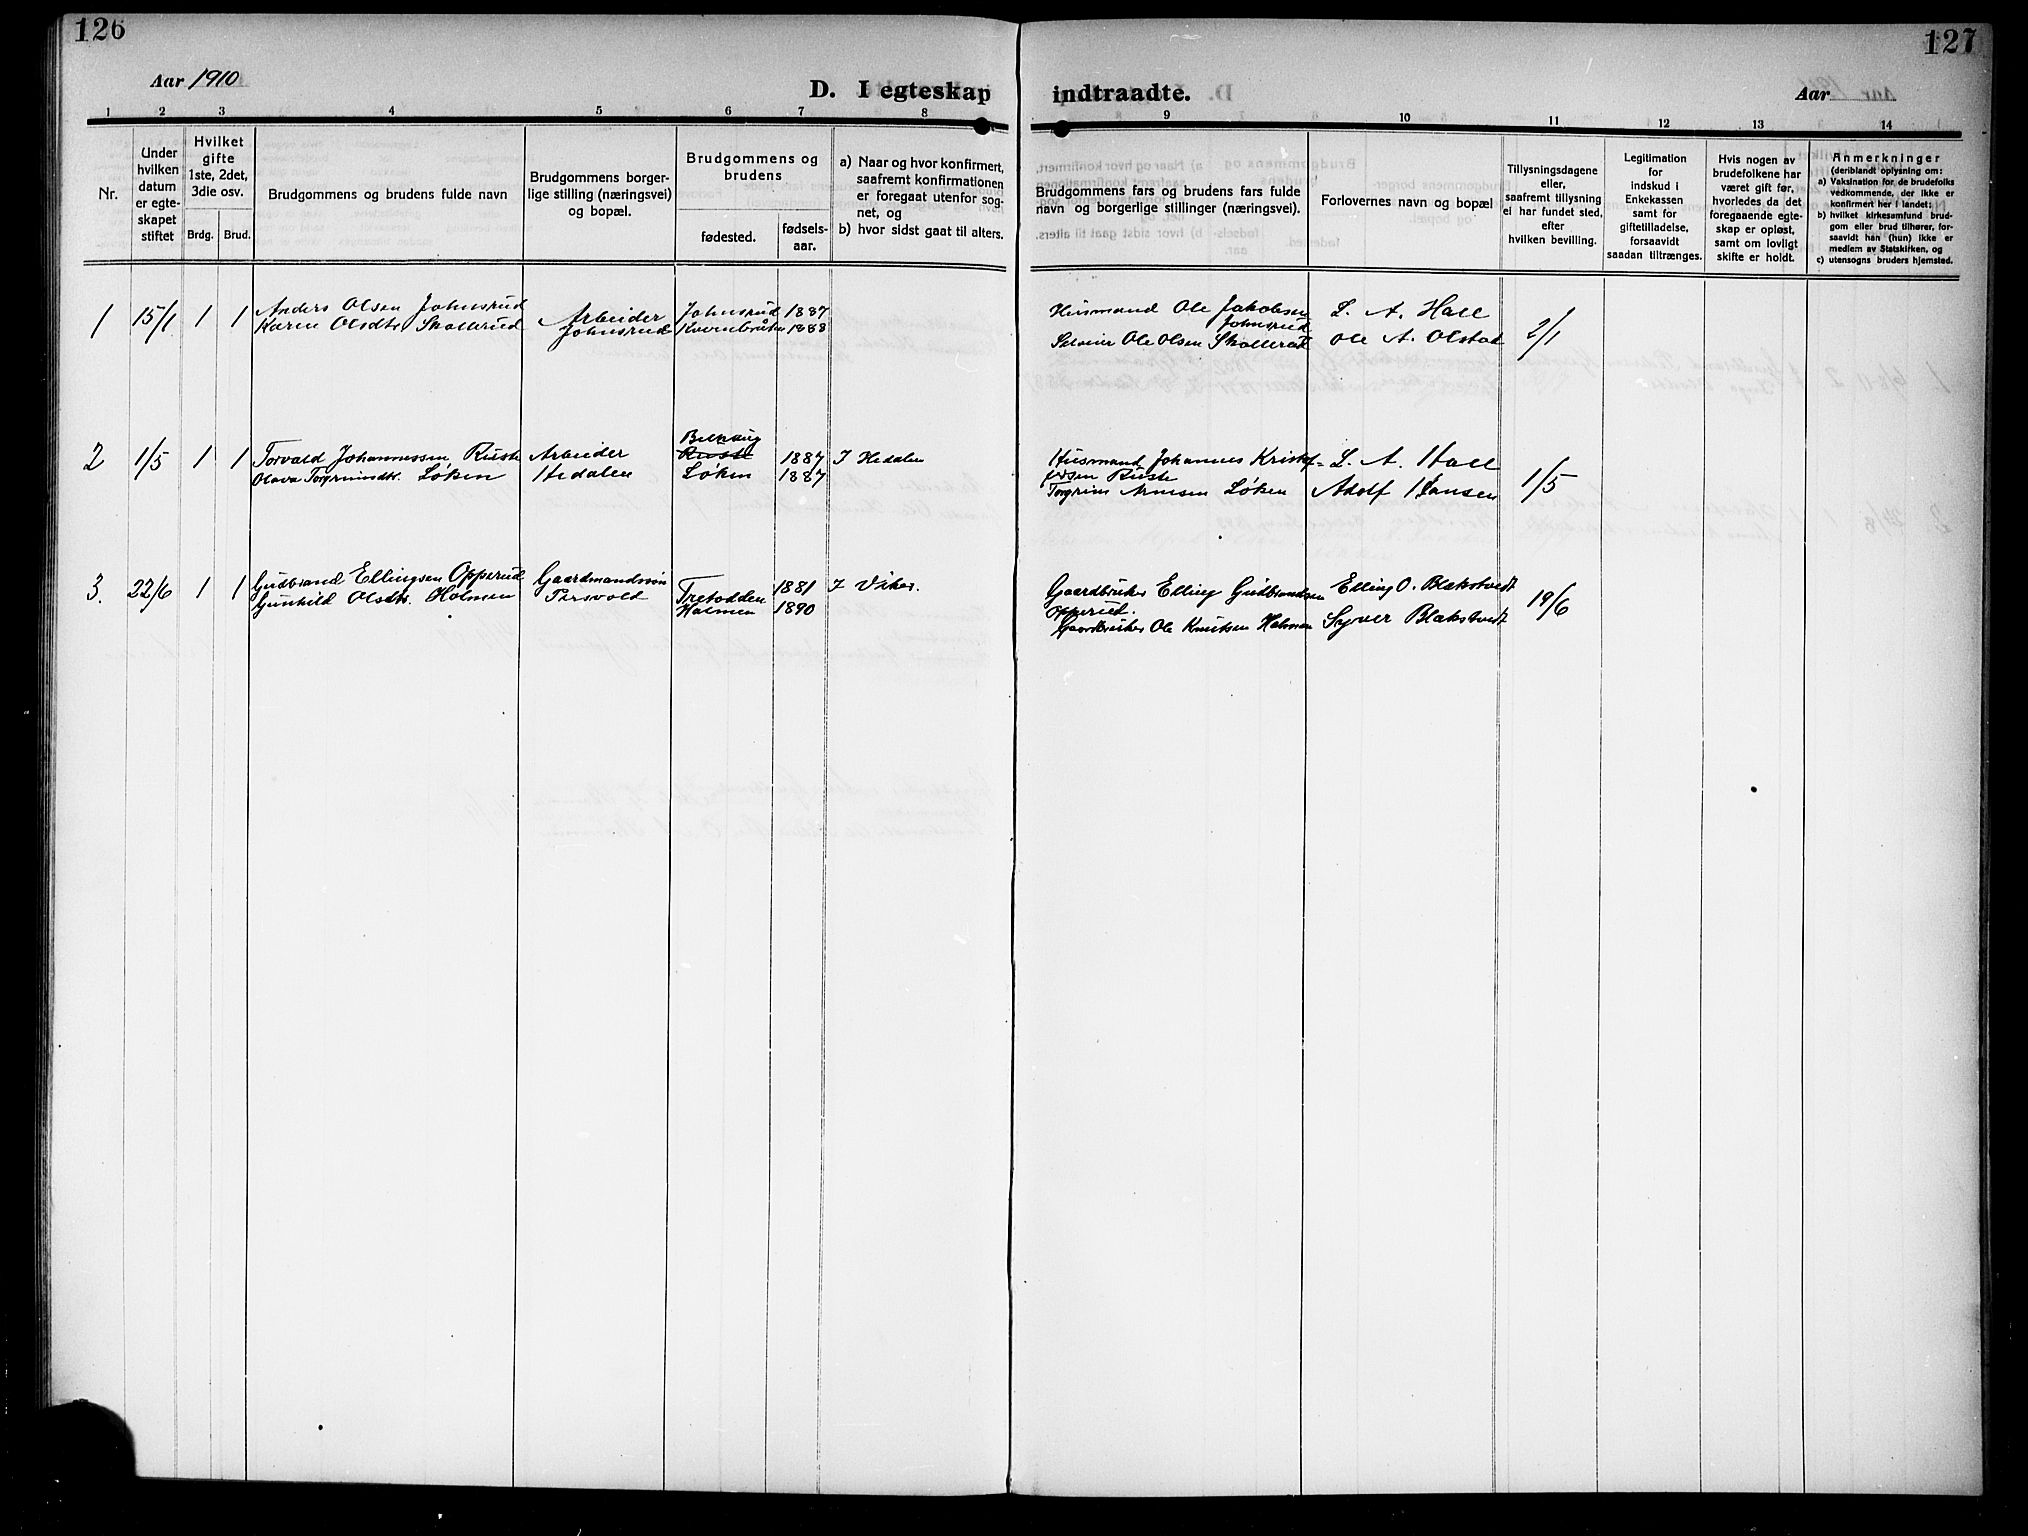 126
Aar 1910
D. I egteskap
1 2 3 4 5 6 7 8
Nr.
Under hvilken datum er egteskapet stiftet
Hvilket gifte 1ste, 2det, 3die osv.
Brdg. Brud.
Brudgommens og brudens fulde navn
Brudgommens borgerlige stilling (næringsvei) og bopæl.
Brudgommens og brudens
fødested. fødselsaar.
a) Naar og hvor konfirmert, saafremt konfirmationen er foregaat utenfor sognet, og
b) hvor sidst gaat til alters.
1 15/1 1 1 Anders Olsen Johnsrud Arbeider Johnsrud 1887
Karen Olsdtr Skollerud Johnsrud 1888
2 1/5 1 1 Torvald Johannessen Ruste Arbeider Ruste 1887 I Hedalen
Olava Torgrimsdtr. Løken Hedalen Løken 1887
3. 22/6 1 1 Gudbrand Ellingsen Opperud Gaardmandssøn Tretodden 1881 I Viker.
Gunhild Olsdtr. Holmen Holmen 1890
127
indtraadte.
Aar
9 10 11 12 13 14
Brudgommens fars og brudens fars fulde navn og borgerlige stillinger (næringsvei).
Forlovernes navn og bopæl
Tillysningsdagene eller, saafremt tillysning ei har fundet sted, efter hvilken bevilling.
Legitimation for indskud i Enkekassen samt for giftetilladelse, forsaavidt saadan tiltrænges.
Hvis nogen av brudefolkene har været gift før, hvorledes da det foregaaende egteskap er opløst, samt om lovligt skifte er holdt.
Anmerkninger (deriblandt oplysning om:
a) Vaksination for de brudefolks vedkommende, der ikke er konfirmert her i landet;
b) hvilket kirkesamfund brudgom eller brud tilhører, forsaavidt han (hun) ikke er medlem av Statskirken, og
c) utensogns bruders hjemsted.
Husmand Ole Jakobsen L. A. Hall 2/1
Johnsrud
Ole Olsen Skollerud Ole A. Olstad
Husmand Johannes Kristof= L. A. Hall 1/5
fersen Ruste
Torgrim Arnesen Løken Adolf Hansen
Gaardbruker Elling Gudbrandsen Elling O. Blakstvedt 19/6
Opperud.
Gaardbruker Ole Knutsen Holmen Syver Blakstvedt